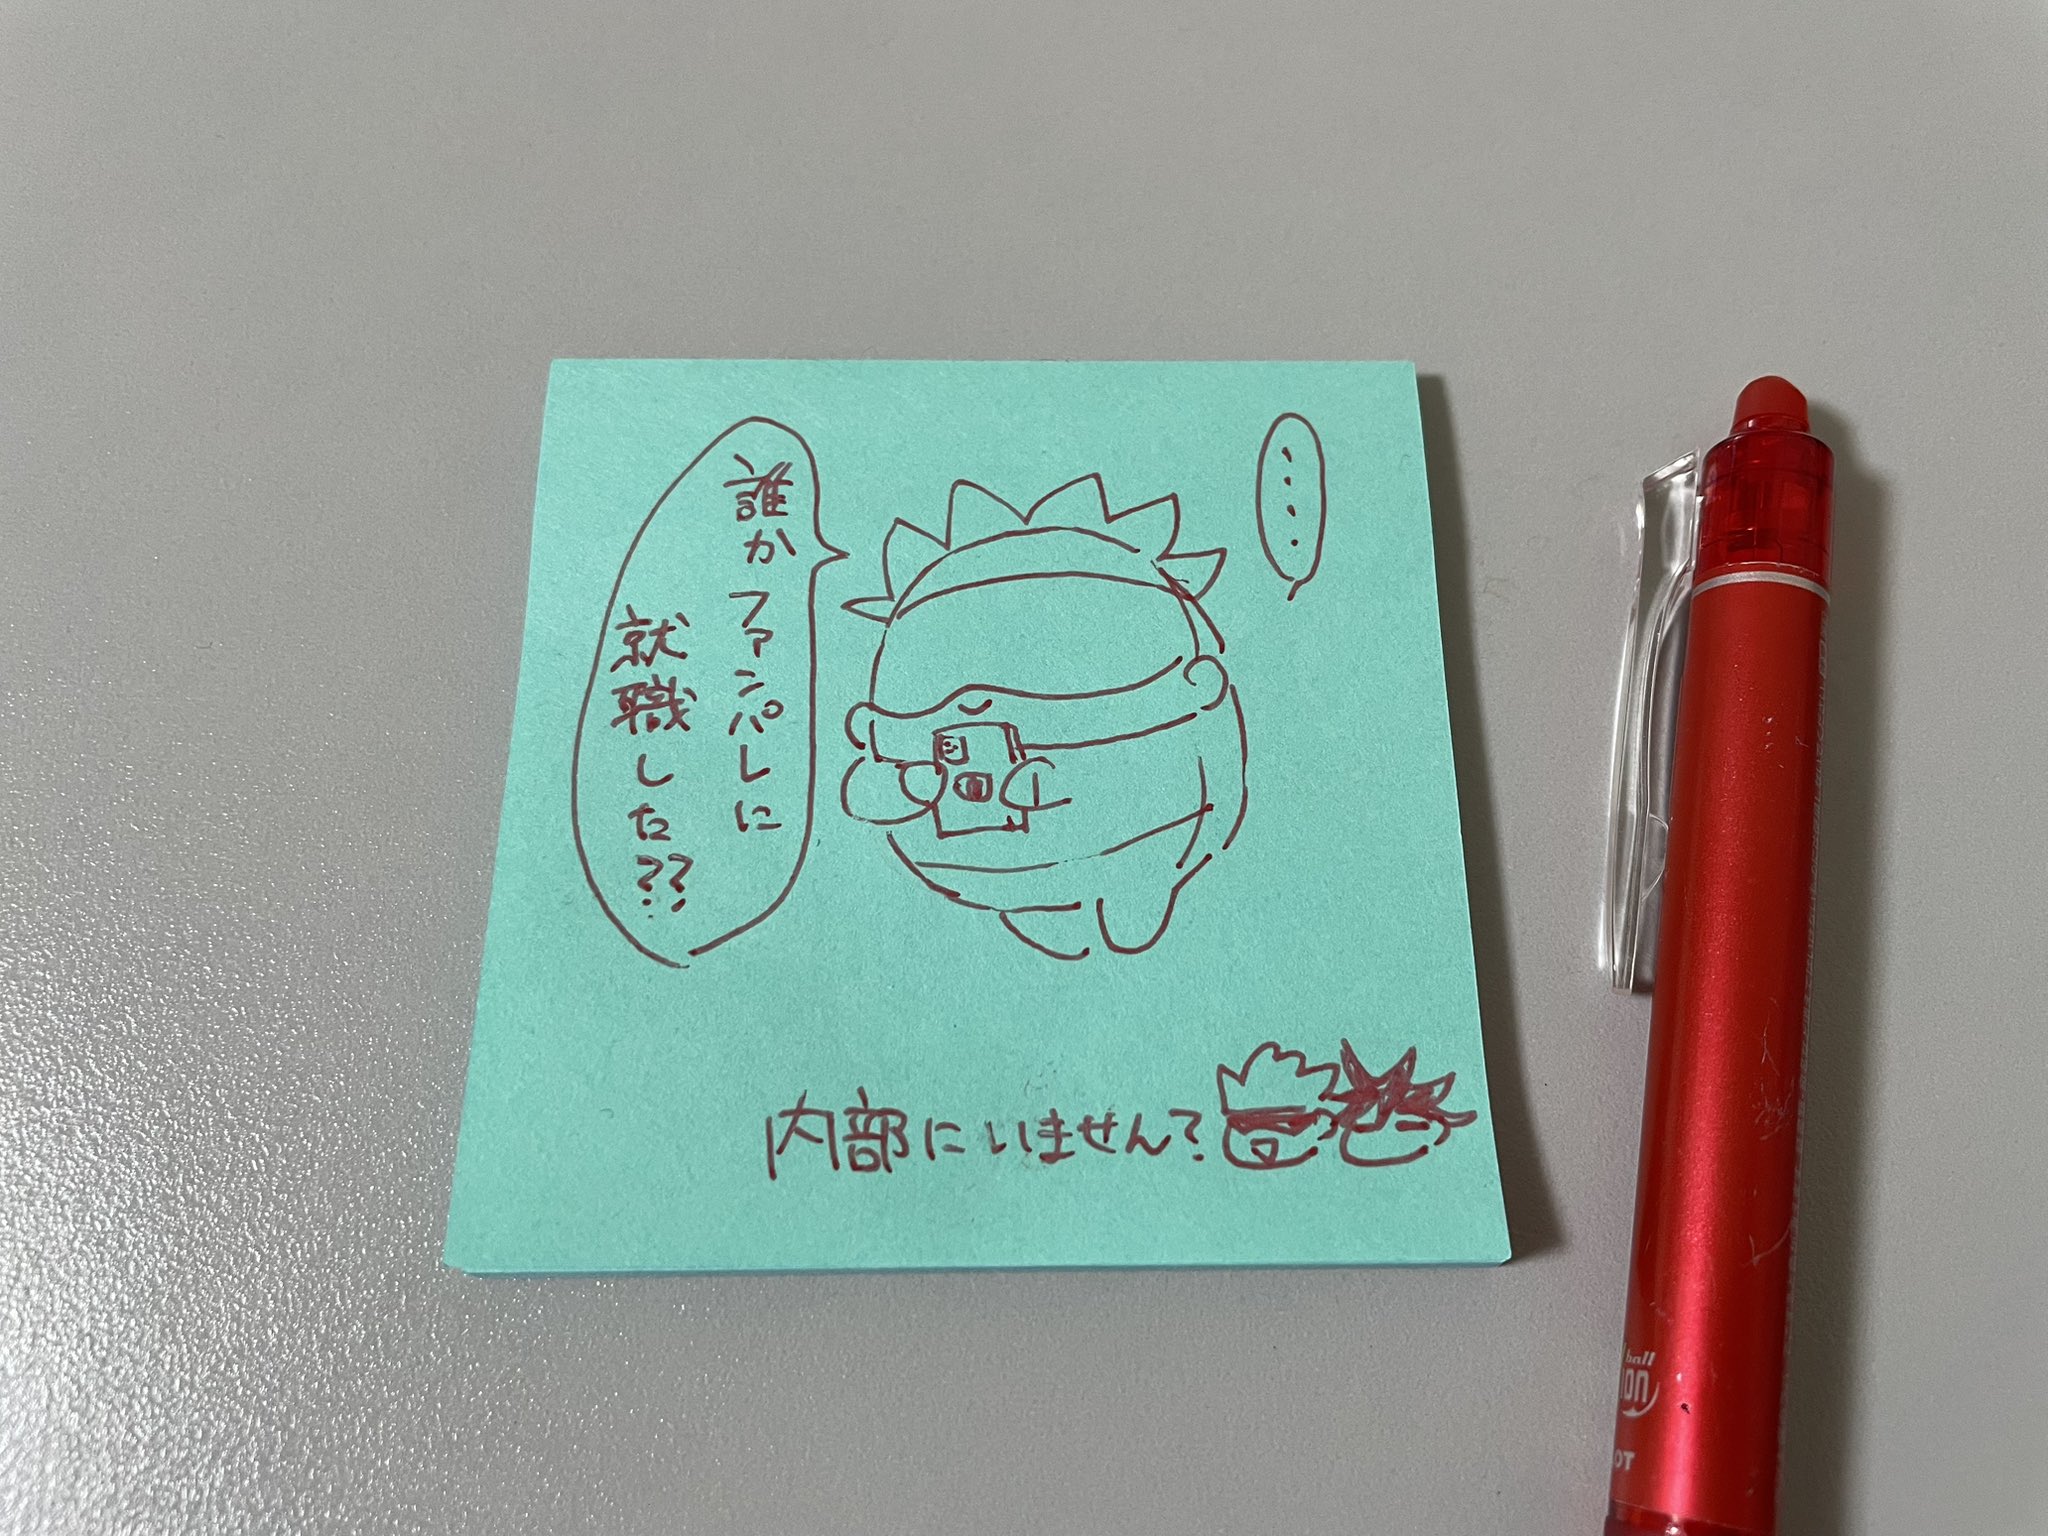 ····
誰かファンパレに
就職した??
内部にいません?
ball
ion
OT